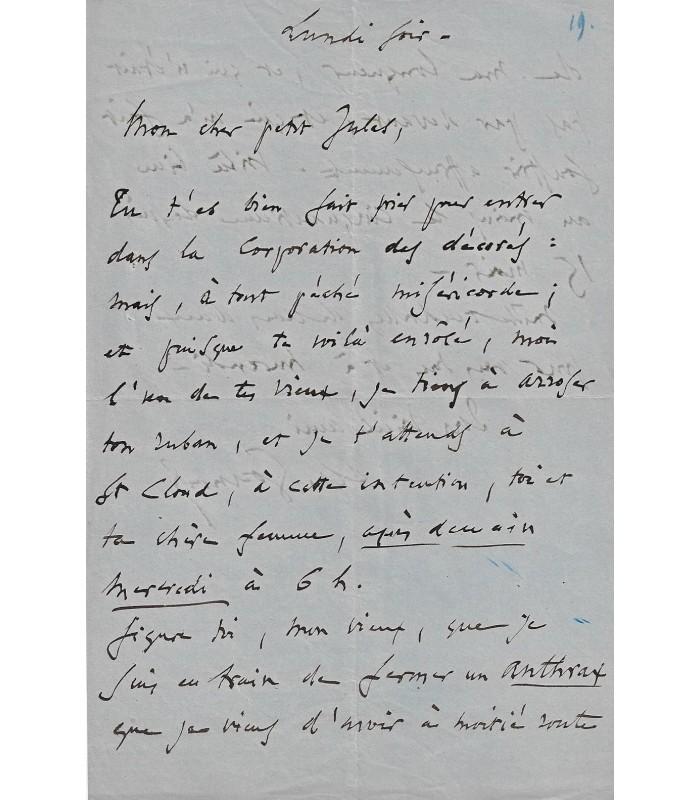 19.
Lundi soir -
Mon cher petit Jules,
Tu t'es bien fait prier pour entrer
dans la Corporation des décorés :
mais, à tout péché miséricorde ;
et puisque te voilà enrôlé, moi
l'un de tes vieux, je tiens à arroser
ton ruban, et je t'attends à
St Cloud, à cette intention, toi et
ta chère femme, après demain
Mercredi à 6 h.
Figure toi, mon vieux, que je
suis en train de fermer un anthrax
que je viens d'avoir à moitié route